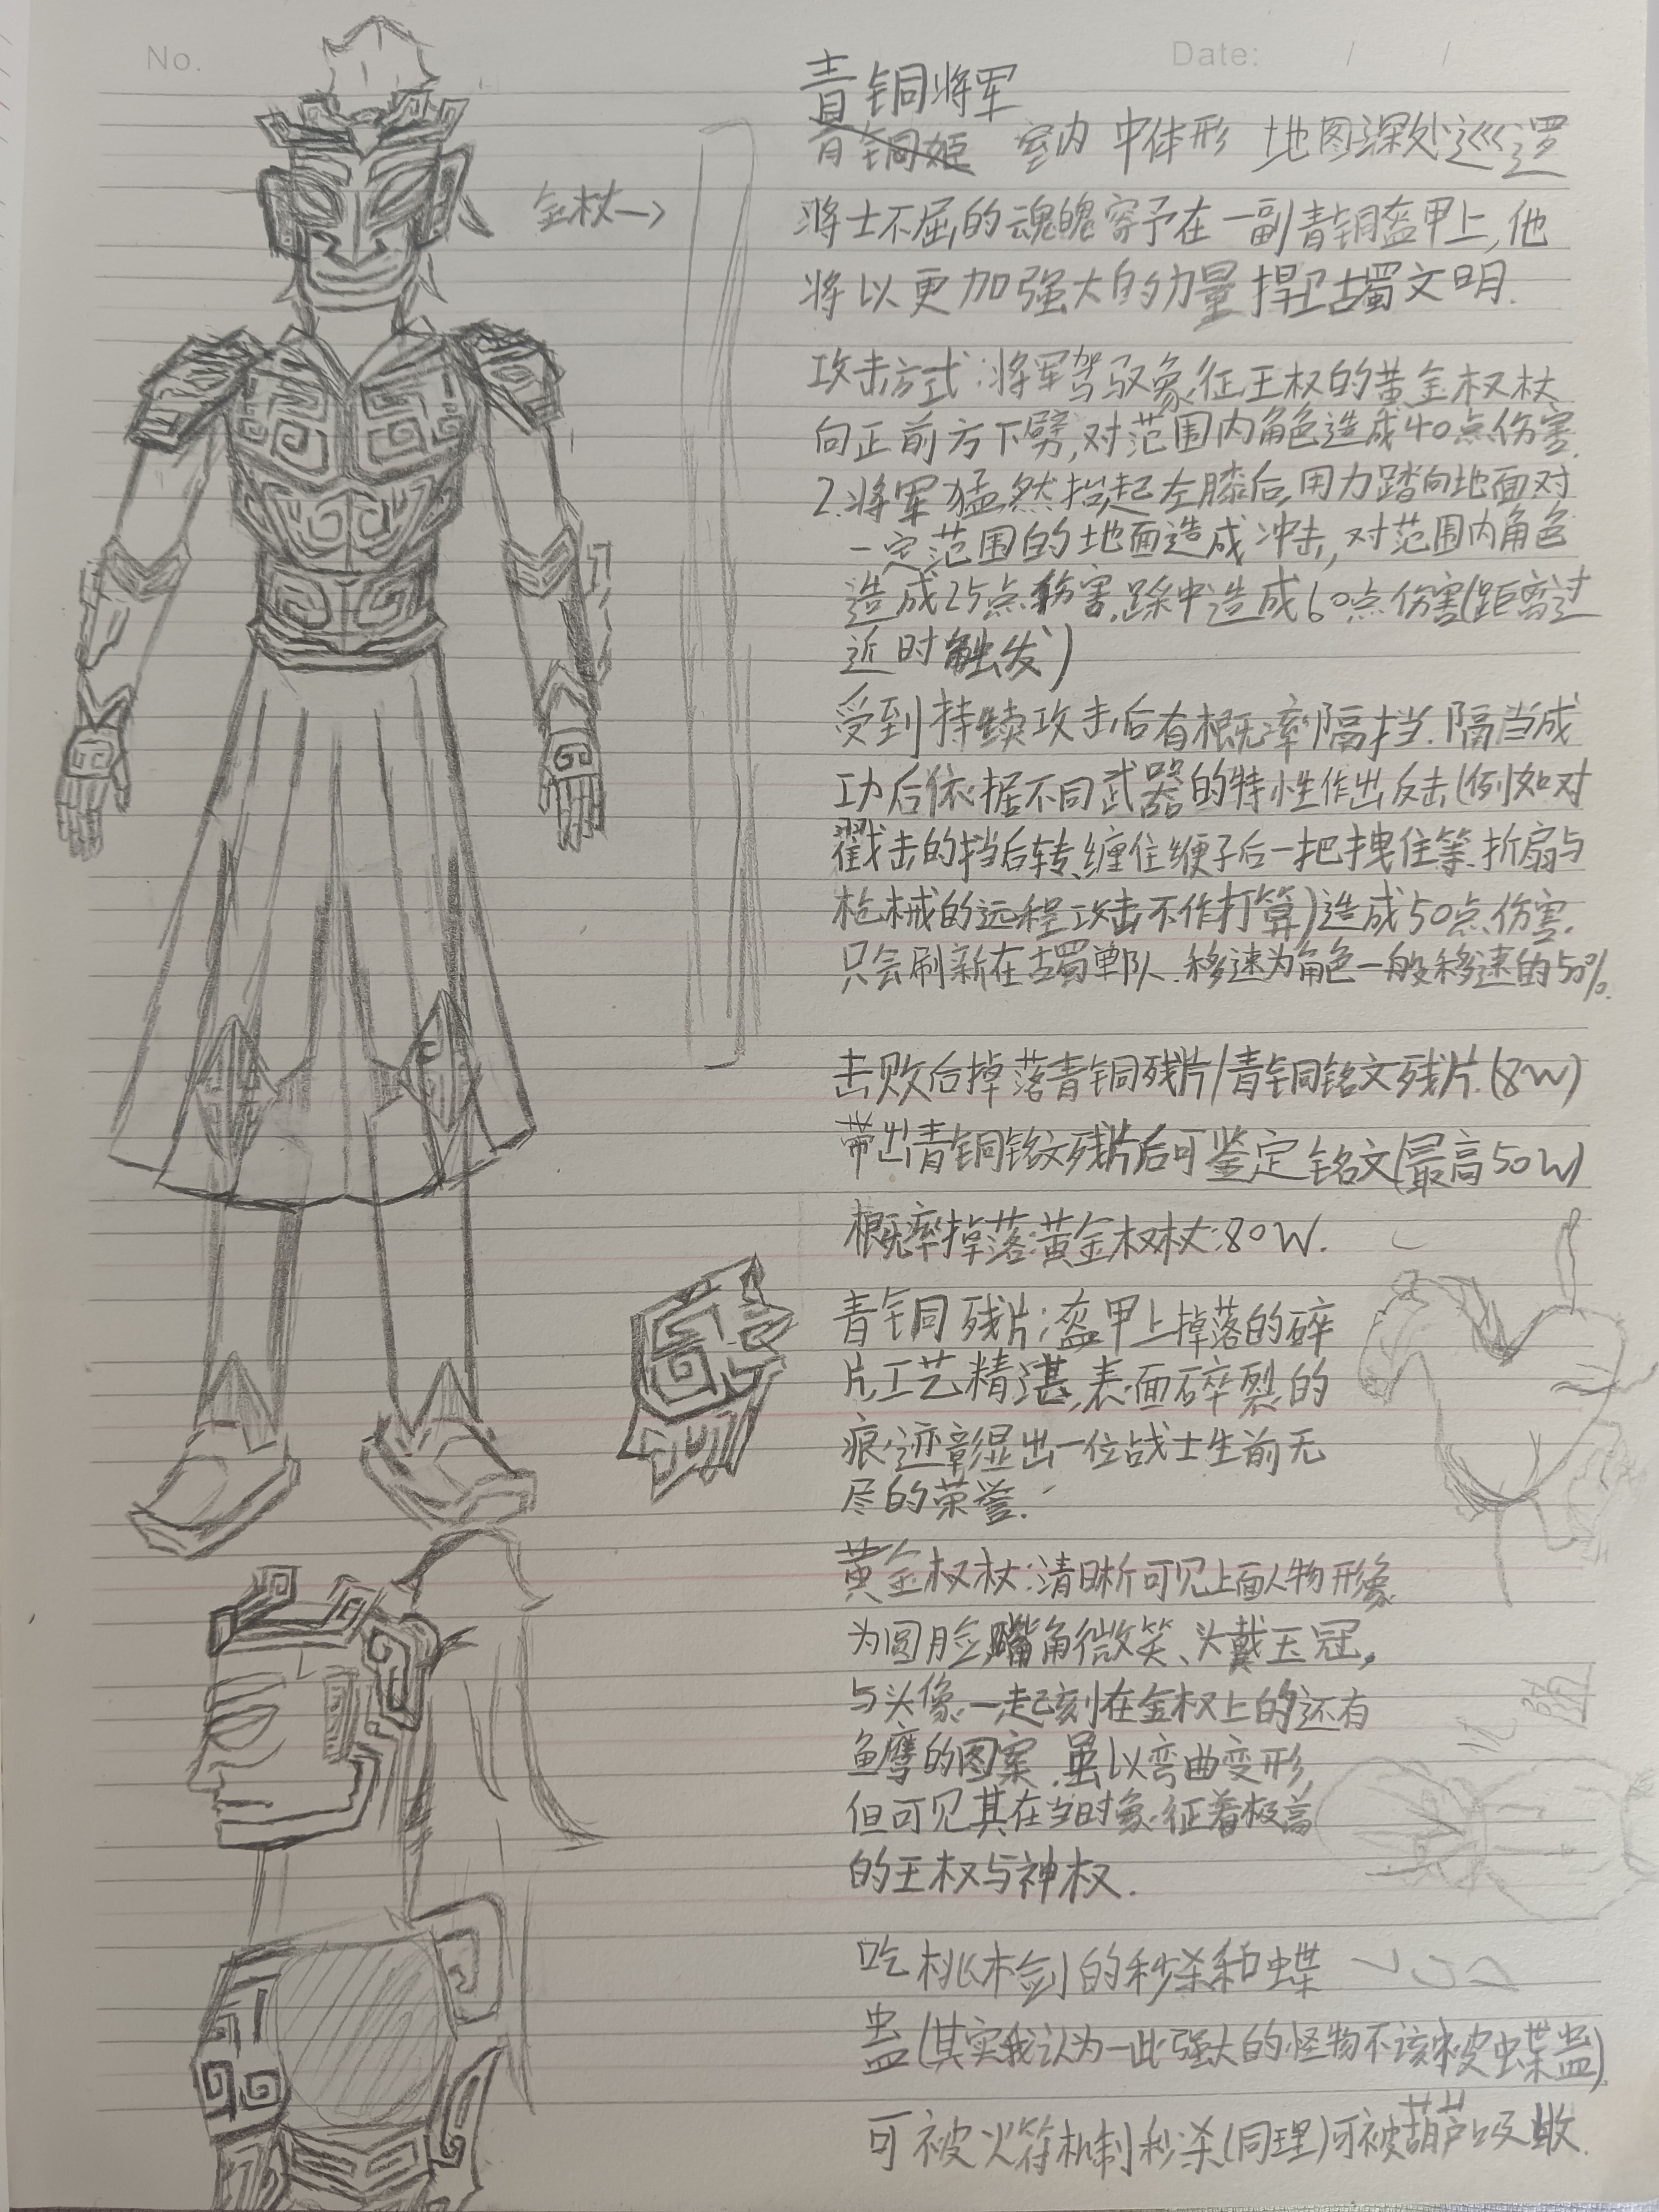 No.
Date: / /
青铜将军
青铜姬 室内 中体形 地图深处巡逻
金杖→
将士不屈的魂魄寄予在一副青铜盔甲上,他
将以更加强大的力量捍卫古蜀文明.
攻击方式:将军驾驭象征王权的黄金权杖
向正前方下劈,对范围内角色造成40点伤害.
2.将军猛然抬起左膝后,用力踏向地面对
一定范围的地面造成冲击,对范围内角色
造成25点伤害,踩中造成60点伤害(距离过
近时触发)
受到持续攻击后有概率隔挡.隔当成
功后依据不同武器的特性作出反击(例如对
戳击的挡后转、缠住鞭子后一把拽住等.折扇与
枪械的远程攻击不作打算)造成50点伤害.
只会刷新在古蜀单队.移速为角色一般移速的50%.
击败后掉落青铜残片/青铜铭文残片.(8W)
带出青铜铭文残片后可鉴定铭文(最高50W)
概率掉落:黄金权杖:80W.
青铜残片:盔甲上掉落的碎
片,工艺精湛,表面碎裂的
痕迹彰显出一位战士生前无
尽的荣誉.
黄金权杖:清晰可见上面人物形象
为圆脸,嘴角微笑、头戴王冠,
与头像一起刻在金权上的还有
鱼鹰的图案.虽以弯曲变形,
但可见其在当时象征着极高
的王权与神权.
吃桃木剑的秒杀和蝶
蛊(其实我认为一些强大的怪物不该被蝶蛊)
可被火符机制秒杀(同理)可被葫芦吸收.